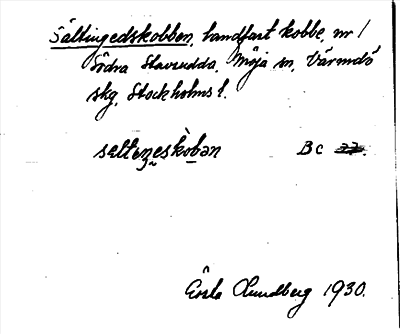 Sältingedskobben, landfast kobbe, nr 1
Södra Stavsudda, Möja sn, Värmdö
skg, Stockholms l.
sælteŋeskòbən Bc 22.
Gösta Lundberg 1930.